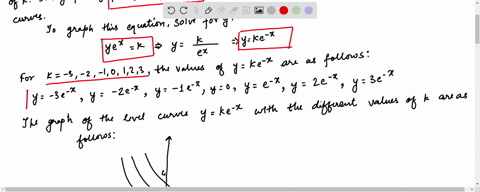 To graph this equation, solve for y.
yeˣ = k ⇒ y = k/eˣ ⇒ y = ke⁻ˣ
For k = -3, -2, -1, 0, 1, 2, 3, the values of y = ke⁻ˣ are as follows:
y = -3e⁻ˣ, y = -2e⁻ˣ, y = -1e⁻ˣ, y = 0, y = e⁻ˣ, y = 2e⁻ˣ, y = 3e⁻ˣ
The graph of the level curves y = ke⁻ˣ with the different values of k are as
follows: